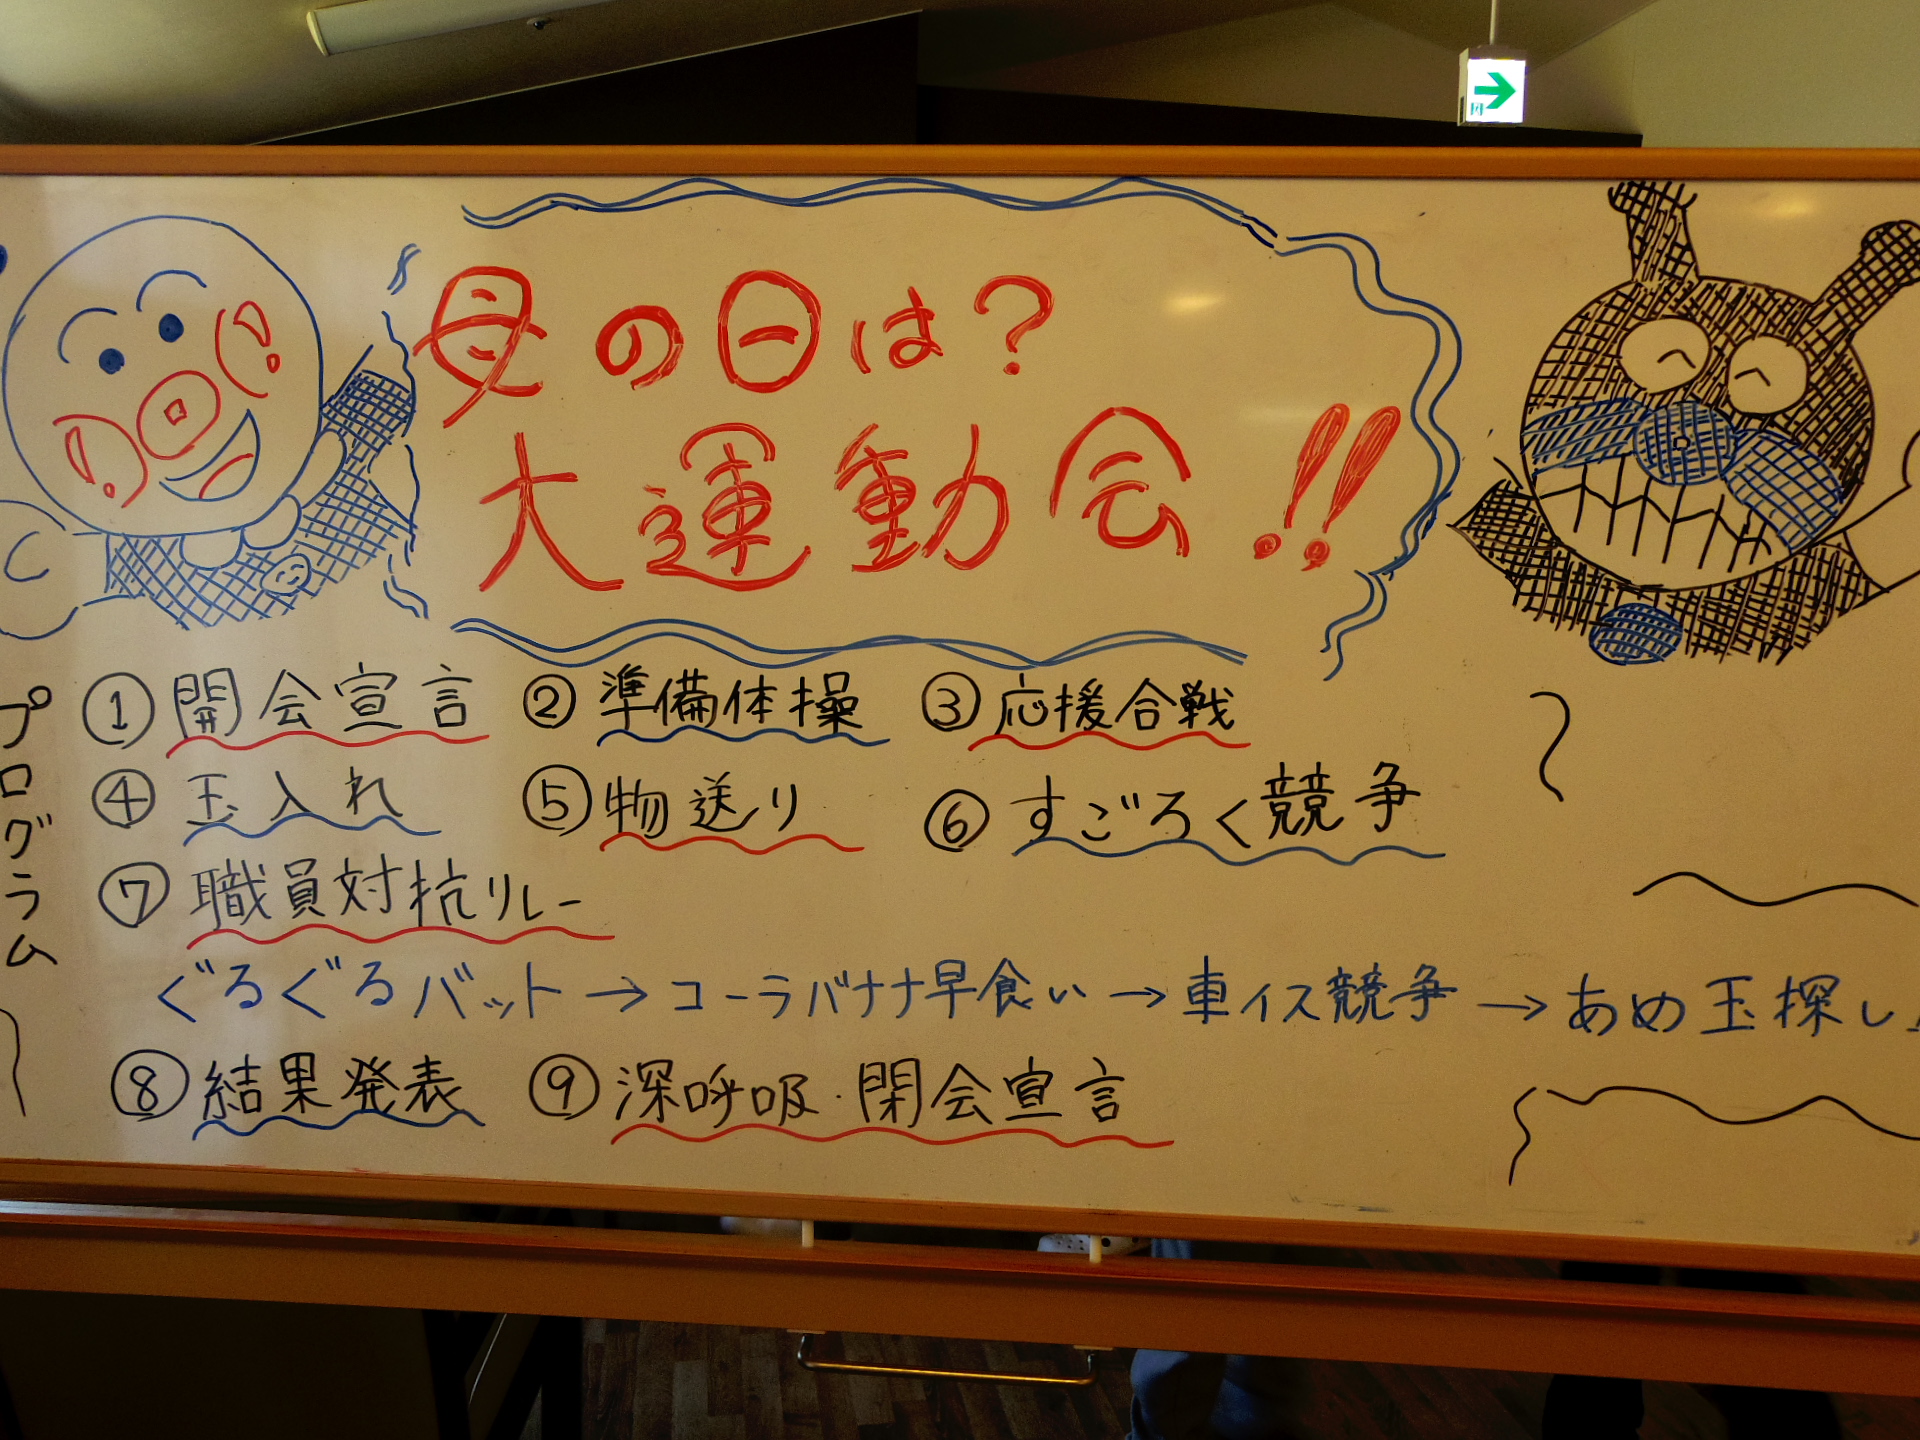 母の日は?
大運動会!!
プログラム
① 開会宣言 ② 準備体操 ③ 応援合戦
④ 玉入れ ⑤ 物送り ⑥ すごろく競争
⑦ 職員対抗リレー
ぐるぐるバット→コーラバナナ早食い→車イス競争→あめ玉探し
⑧ 結果発表 ⑨ 深呼吸・閉会宣言